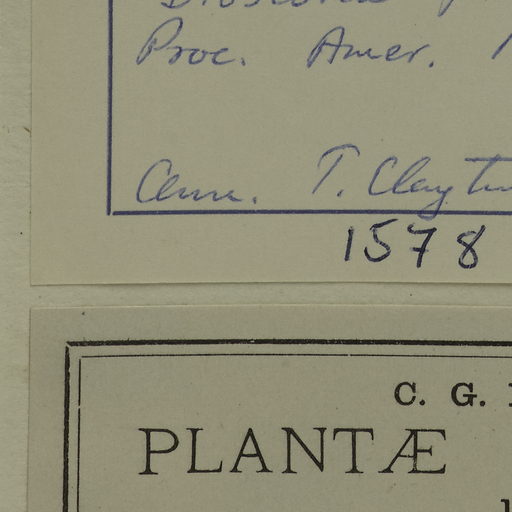 Proc. Amer.
Ann. T. Clayton
1578
C. G.
PLANTÆ